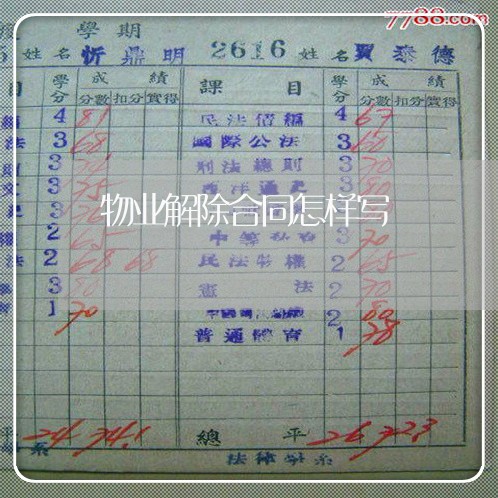 7788.com
學期
姓名 忻鼎明 2616 姓名 賈泰德
目 學分 成績 課目 學分 成績
分數 扣分 實得 分數 扣分 實得
4 81 民法債編 4 67
法 3 68 國際公法 3 60
3 刑法總則 3 70
3 75 西洋通史 3 80
物业解除合同怎样写
2 65 3 70
法 2 68 68 民法物權 2 65
3 80 憲法 2 70
1 70 2 80
普通體育 1 78
平 24 74.1 總平 26 72.3
系 法律學系